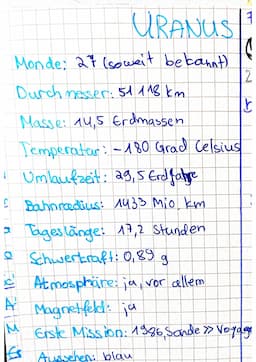 URANUS
Monde: 27 (soweit bekannt)
Durchmesser: 51 118 km
Masse: 14,5 Erdmassen
Temperatur: -180 Grad Celsius
Umlaufzeit: 29,5 Erdjahre
Bahnradius: 1433 Mio. km
Tageslänge: 17,2 Stunden
Schwerkraft: 0,89 g
Atmosphäre: ja, vor allem
Magnetfeld: ja
Erste Mission: 1986, Sonde » Voyage
Aussehen: blau